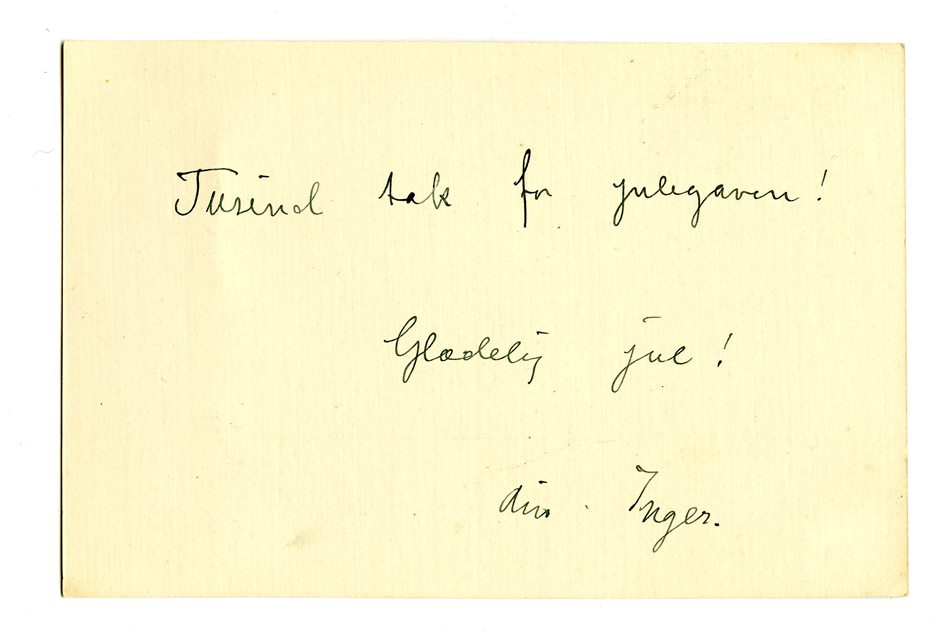 Tusind tak for julegaven!
Glædelig jul!
din Inger.